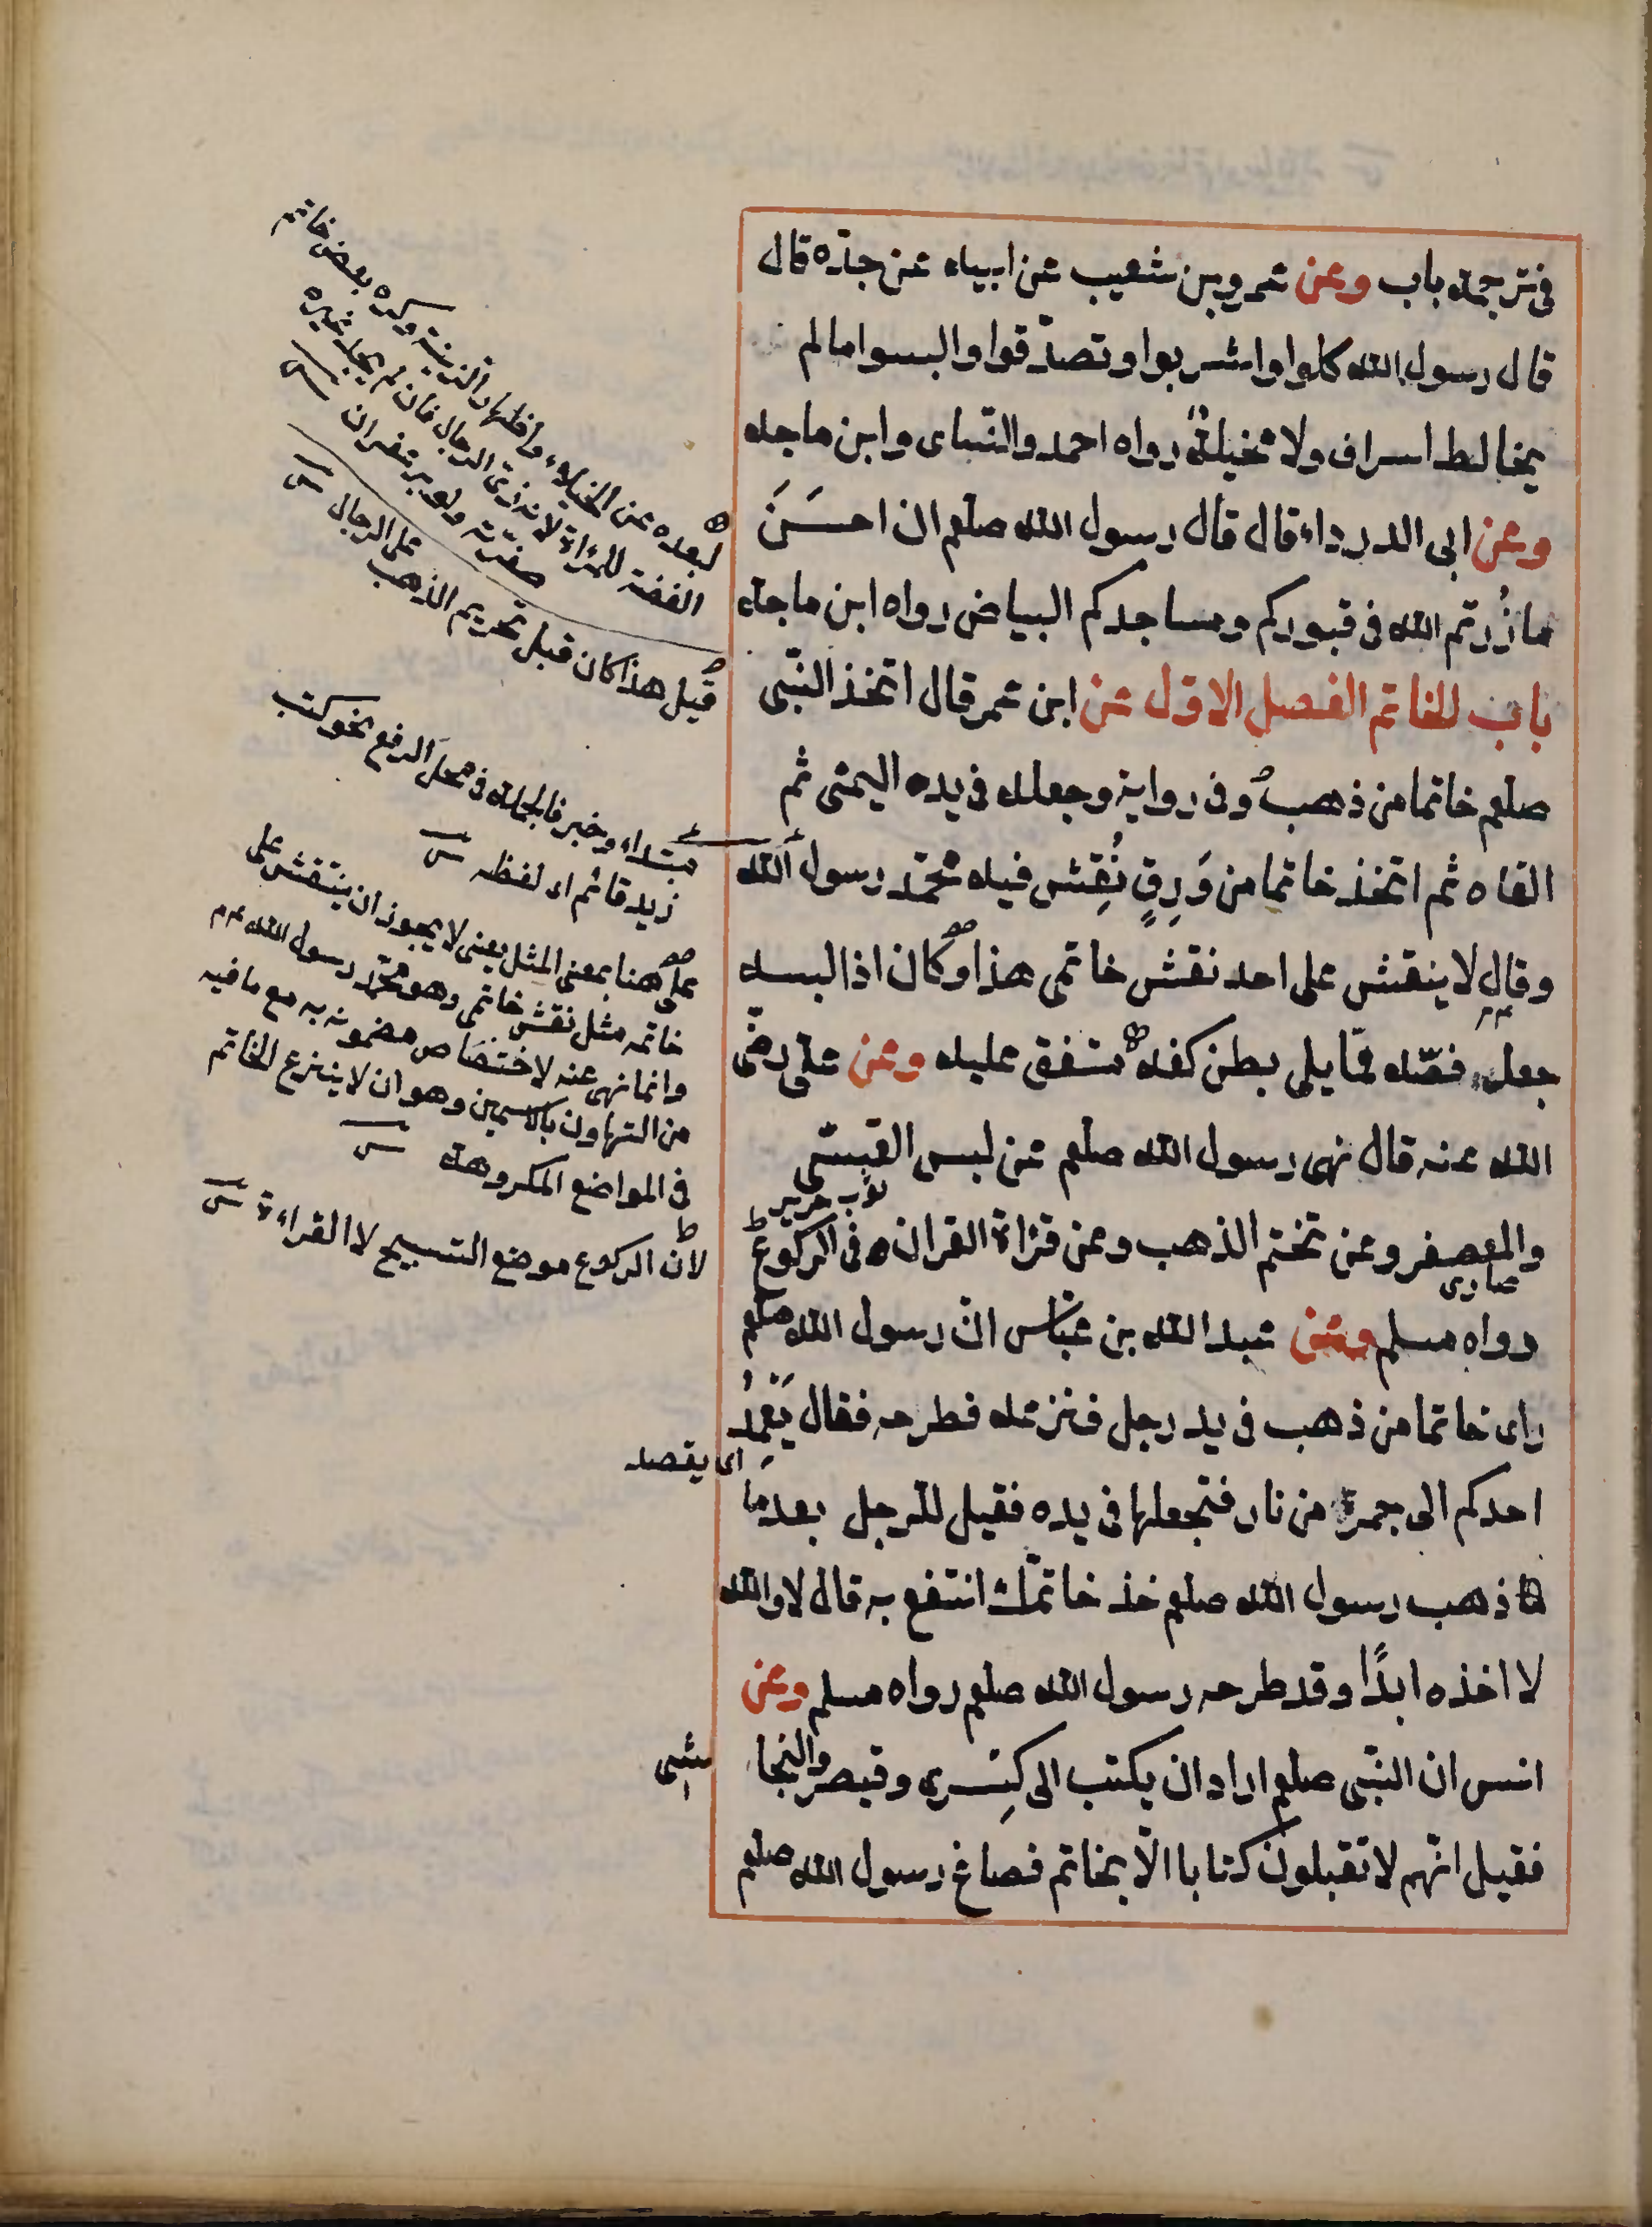 في ترجمة باب وعن عمرو بن شعيب عن ابيه عن جدّه قال
قال رسول الله كلوا واشربوا وتصدّقوا والبسوا ما لم
يخالط اسراف ولا مخيلة رواه احمد والنّسائ وابن ماجه
وعن ابي الدرداء قال قال رسول الله صلعم ان احسَنَ
ما زُرتم الله في قبوركم ومساجدكم البياض رواه ابن ماجه
باب الخاتم الفصل الاوّل عن ابن عمر قال اتخذ النّبي
صلعم خاتما من ذهب وفي رواية وجعله في يده اليمنى ثم
القاه ثم اتخذ خاتما من وَرِقٍ نُقِش فيه محمّد رسول الله
وقال لا ينقش على احد نقش خاتمي هذا وكان اذا لبسه
جعل فصّه ممّا يلي بطن كفه متفق عليه وعن عليّ رضي
الله عنه قال نهى رسول الله صلعم عن لبس القسّي
ثوب حرير
والمعصفر وعن تختم الذهب وعن قراة القران في الركوع
رواه مسلم وعن عبد الله بن عبّاس انّ رسول الله صلعم
راى خاتما من ذهب في يد رجل فنزعه فطرحه فقال يَعمِدُ
اى يقصد
احدكم الى جمرة من نار فتجعلها في يده فقيل للرجل بعد ما
ذهب رسول الله صلعم خذ خاتمك انتفع به قال لا والله
لا اخذه ابدًا وقد طرحه رسول الله صلعم رواه مسلم وعن
انس ان النّبي صلعم اراد ان يكتب الى كِسرى وقيصر والنجا
شي
فقيل انّهم لا تقبلون كتابا الّا بخاتم فصاغ رسول الله صلعم
لبعده عن الخيلاء واظهار الزينة وكره بعض خاتم
الفضة للمراة لانه زيّ الرجال فان لم يجد غيره
صفّرته ولو بزعفران
قيل هذا كان قبل تحريم الذهب
على الرجال
مبتداء وخبر فالجملة في محل الرفع نحو كتب
زيد قائم اى لفظه
على هنا بمعنى المثل يعنى لا يجوز ان ينقش على
خاتمه مثل نقش خاتمي وهو محمّد رسول الله
وانما نهى عنه لاختصاص مضمونه به مع ما فيه
من التهاون بالاسمين وهو ان لا ينزع الخاتم
في المواضع المكروهة
لانّ الركوع موضع التسبيح لا القراءة